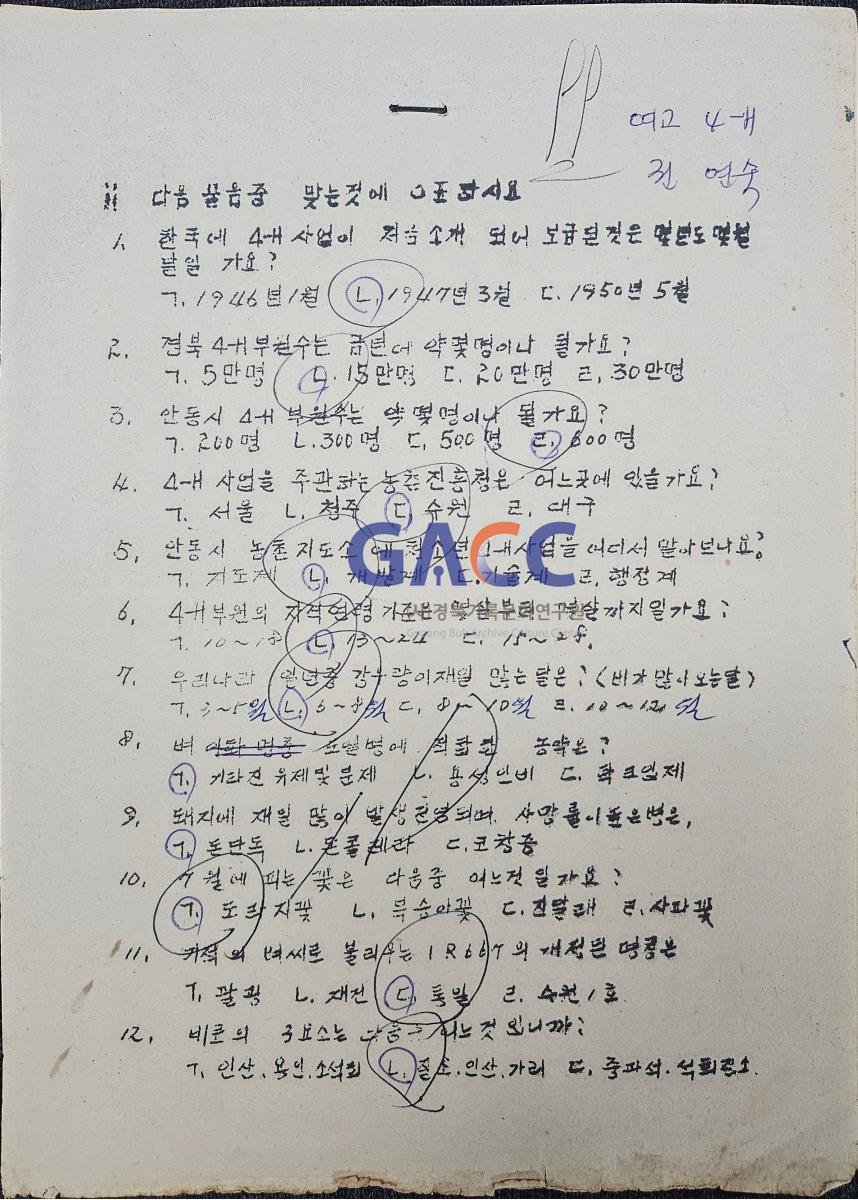 여고 4-H
전 연숙
다음 물음중 맞는것에 ○표 하시요
1. 한국에 4-H사업이 처음 소개 되어 보급된것은 몇년도 몇월
날일 가요?
ㄱ. 1946년 1월 ㄴ. 1947年 3월 ㄷ. 1950년 5월
2. 경북 4-H부원수는 금년에 약몇명이나 될가요?
ㄱ. 5만명 ㄴ. 15만명 ㄷ. 20만명 ㄹ. 30만명
3. 안동시 4-H 부원수는 약 몇명이나 될가요?
ㄱ. 200명 ㄴ. 300명 ㄷ. 500명 ㄹ. 600명
4. 4-H 사업을 주관하는 농촌진흥청은 어느곳에 있을가요?
ㄱ. 서울 ㄴ. 청주 ㄷ. 수원 ㄹ. 대구
GACC
5. 안동시 농촌지도소에 청소년 4-H사업을 어디서 맡아보나요?
ㄱ. 지도계 ㄴ. 개발계 ㄷ. 기술계 ㄹ. 행정계
경북기록문화연구원
Gyeong Buk Archive Culture Center
6. 4-H부원의 자격연령 기준은 몇살부터 몇살까지일가요?
ㄱ. 10~18 ㄴ. 13~24 ㄷ. 15~28.
7. 우리나라 일년중 강우량이 재일 많는달은? (비가 많이 오는달)
ㄱ. 3~5월 ㄴ. 6~8월 ㄷ. 8~10월 ㄹ. 10~12월
8. 벼 도열병에 적합한 농약은?
ㄱ. 키타진 유제및 분제 ㄴ. 용성인비 ㄷ. 파크입제
9. 돼지에 재일 많이 발생전염되며 사망률이높은병은,
ㄱ. 돈단독 ㄴ. 돈콜레라 ㄷ. 코창증
10. 7월에 피는 꽃은 다음중 어느것 일가요?
ㄱ. 도라지꽃 ㄴ. 복숭아꽃 ㄷ. 진달래 ㄹ. 사과꽃
11. 기적의 벼씨로 불리우는 IR667의 개정된 명칭은
ㄱ. 팔굉 ㄴ. 재건 ㄷ. 통일 ㄹ. 수원 1호
12. 비료의 3요소는 다음중 어느것 입니까?
ㄱ. 인산. 용인. 소석회 ㄴ. 질소. 인산. 가리 ㄷ. 중과석. 석회질소.